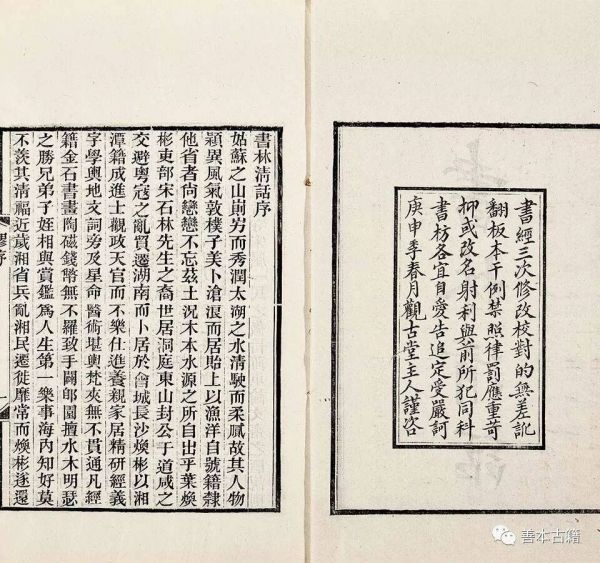 書經三次修改校對的無差訛
翻板本干例禁照律罰應重苛
抑或改名射利與前所犯同科
書枋各宜自愛告追定受嚴訶
庚申季春月觀古堂主人謹咨
書林清話序
姑蘇之山崱屴而秀潤太湖之水清駛而柔膩故其人物
穎異風氣敦樸子美卜滄浪而居貽上以漁洋自號籍隸
他省者尚戀戀不忘茲土況木本水源之所自出乎葉煥
彬吏部宋石林先生之裔世居洞庭東山封公于道咸之
交避粵寇之亂貿遷湖南而卜居於會城長沙煥彬以湘
潭籍成進士觀政天官而不樂仕進養親家居精研經義
字學輿地文詞旁及星命醫術堪輿梵夾無不貫通凡經
籍金石書畫陶磁錢幣無不羅致手闢郋園擅水木明瑟
之勝兄弟子姪相與賞鑑爲人生第一樂事海內知好莫
不羨其清福近歲湘省兵亂湘民遷徙靡常而煥彬逐還
繆序
一
善本古籍